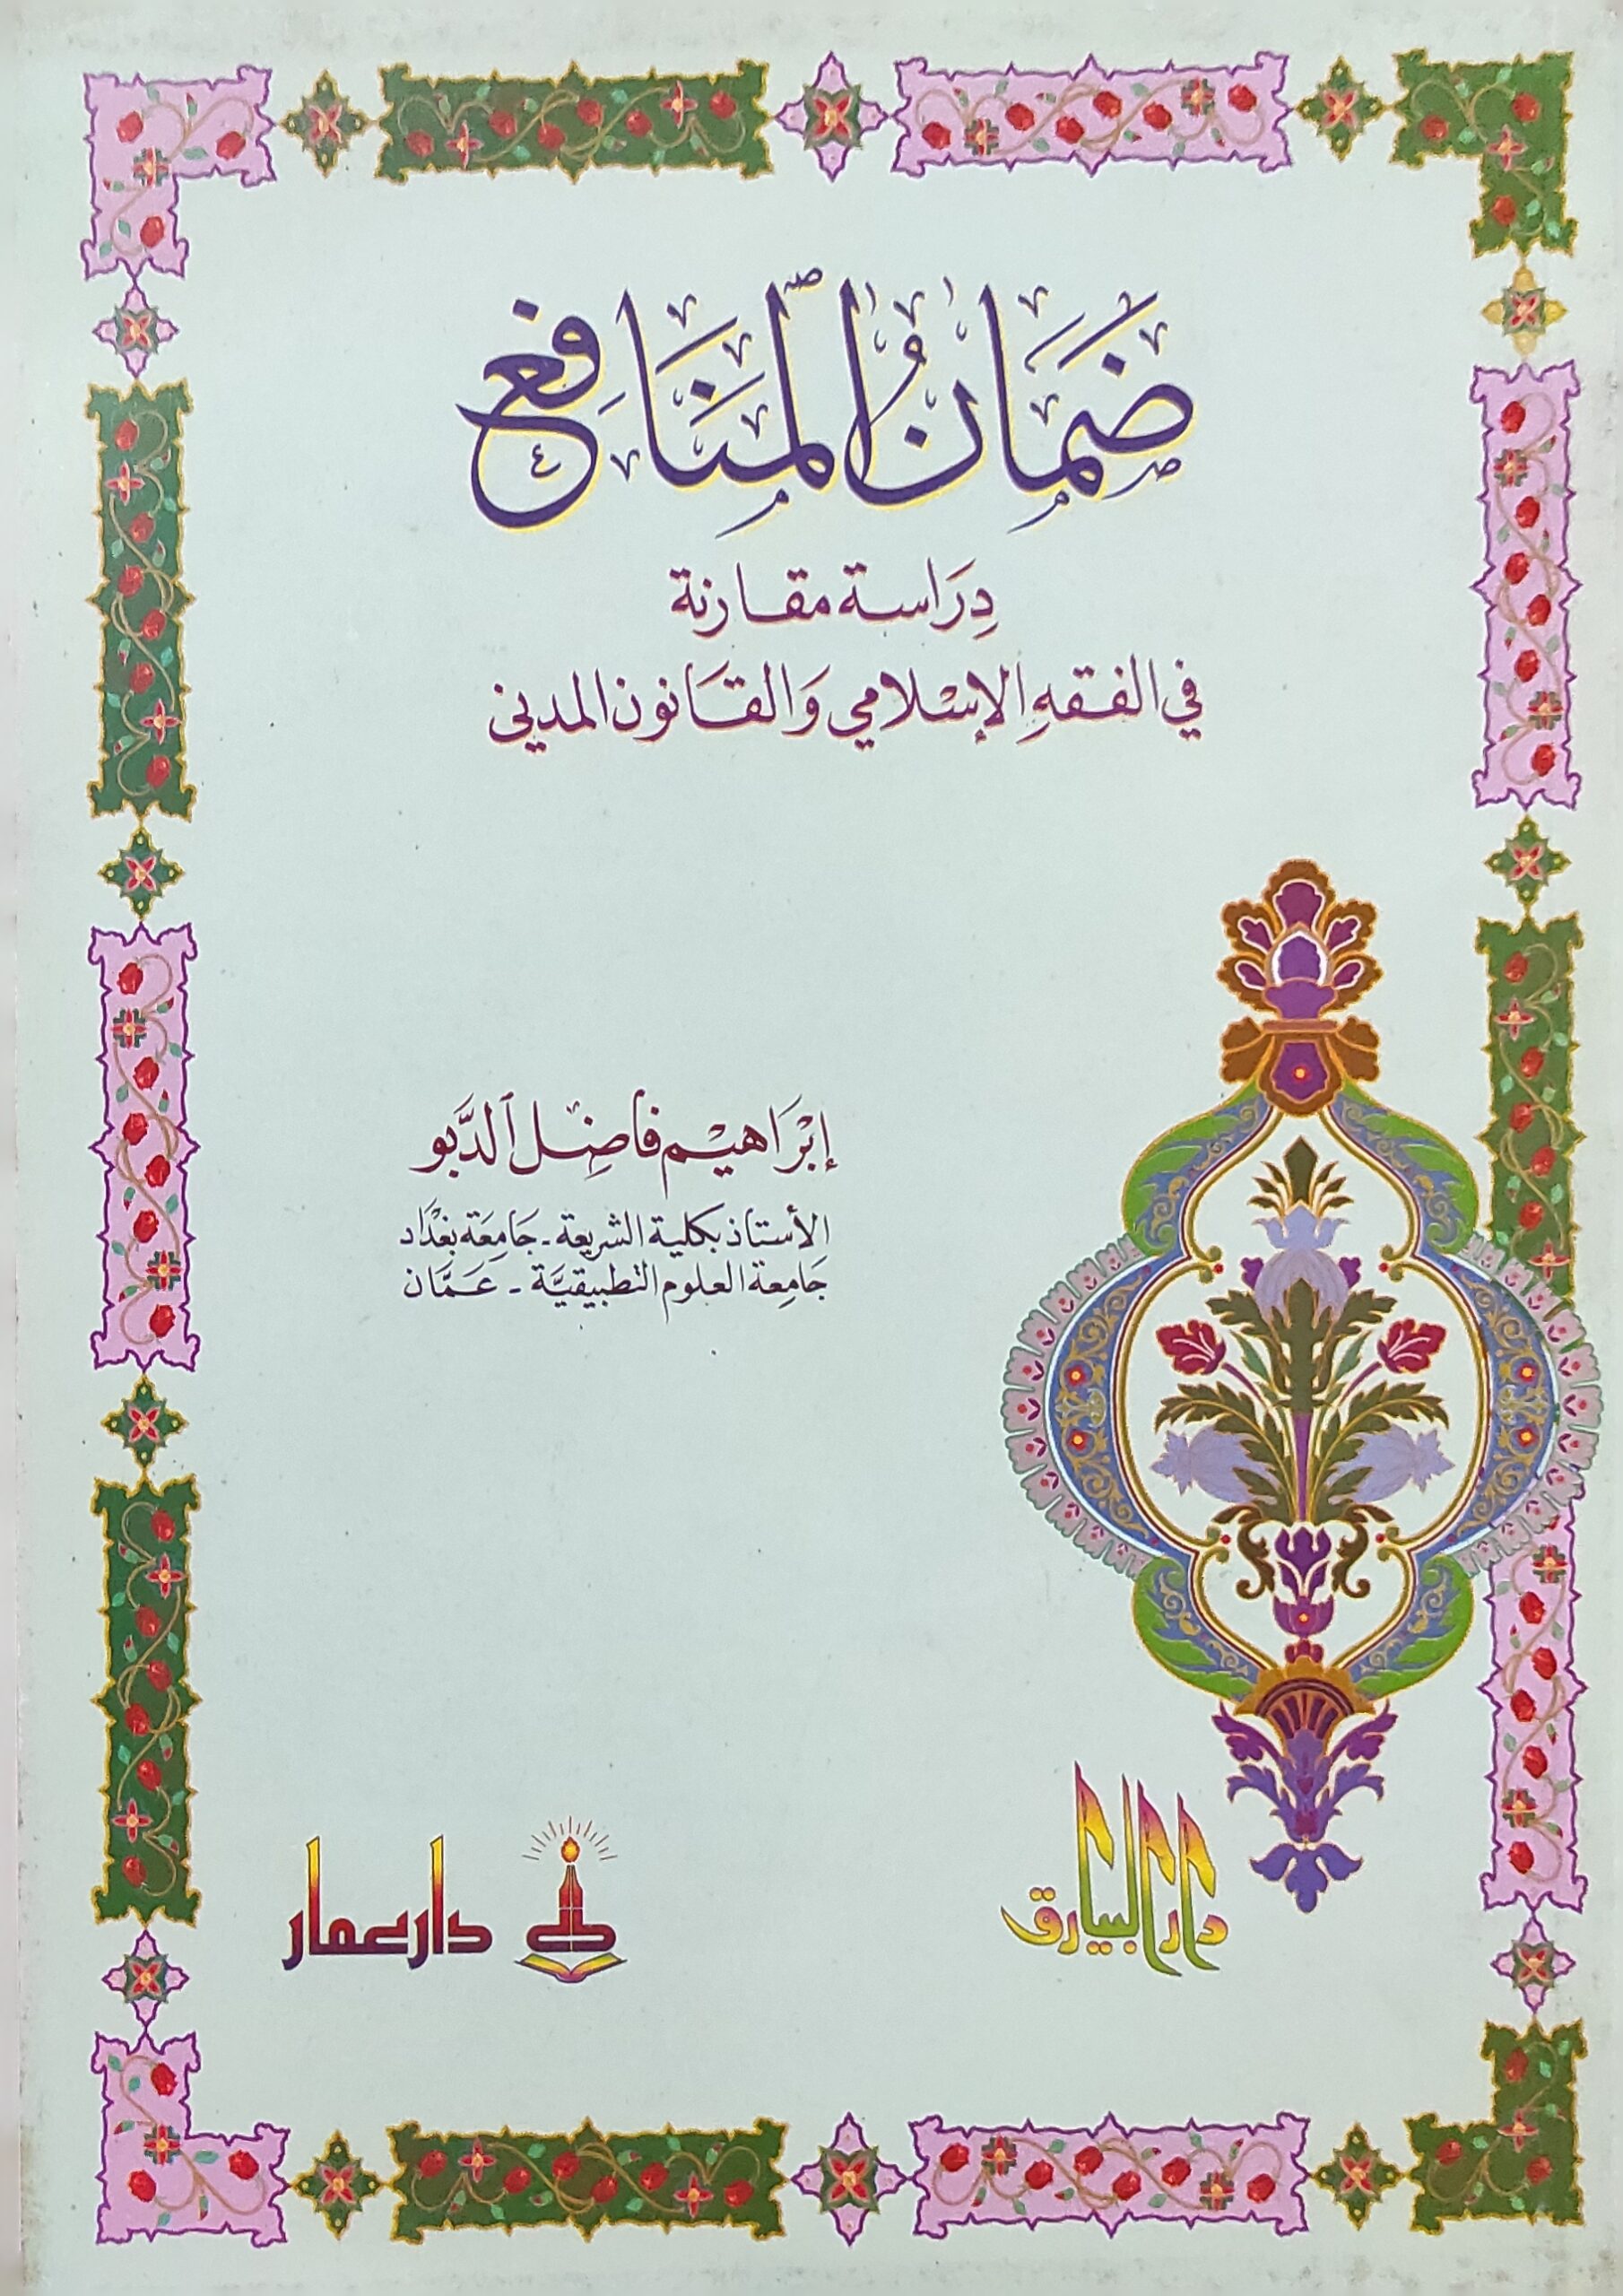 ضَمَانُ المَنَافِع
دِرَاسة مقارنة
في الفقهِ الإسْلامي وَالقَانون المدني
إبْرَاهيْم فَاضِل الدَّبو
الأستاذ بكلية الشريعة - جَامِعَة بَغْدَاد
جَامِعة العلوم التطبيقيَّة - عَمَّان
دار البيارق
دار عمار